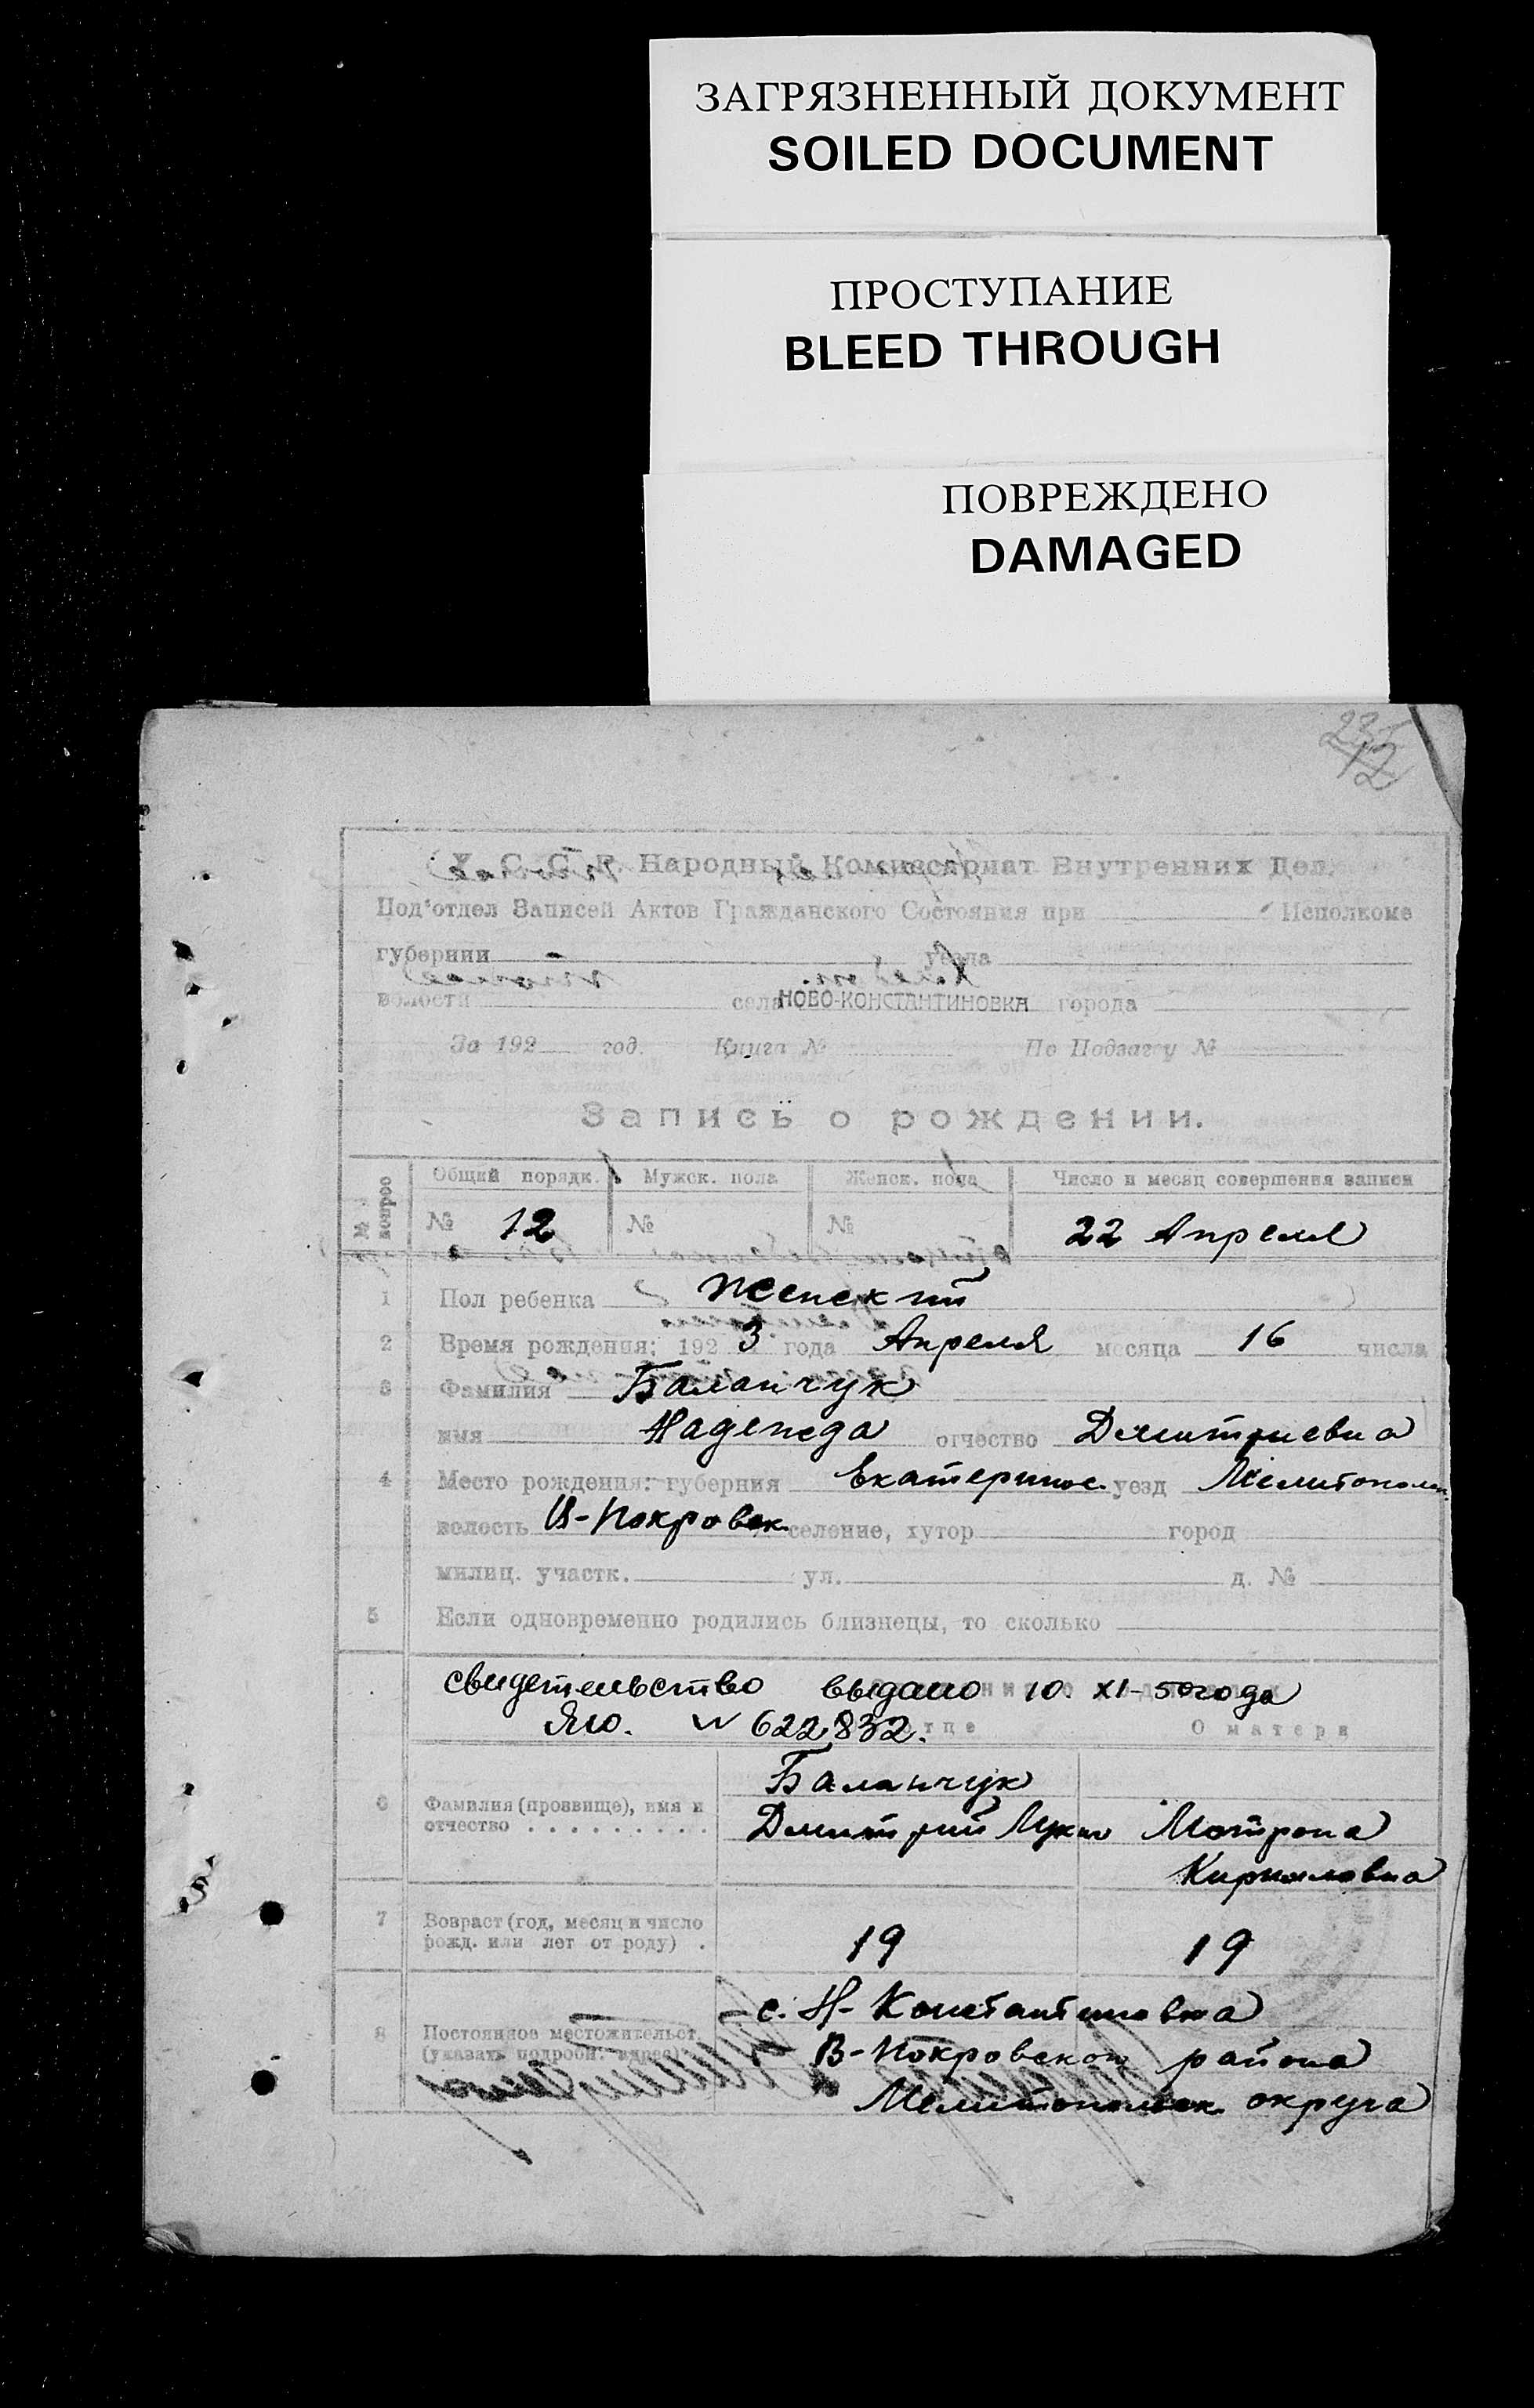 ЗАГРЯЗНЕННЫЙ ДОКУМЕНТ
SOILED DOCUMENT
ПРОСТУПАНИЕ
BLEED THROUGH
ПОВРЕЖДЕНО
DAMAGED
У. С. С. Р. Народный Комиссариат Внутренних Дел.
Под'отдел Записей Актов Гражданского Состояния при Исполкоме
губернии уезда
волости села НОВО-КОНСТАНТИНОВКА города
За 192 год. Книга № По Подзагсу №
Запись о рождении.
№ вопрос Общий порядк. Мужск. пола Женск. пола Число и месяц совершения записи
№ 12 № № 22 Апреля
1 Пол ребенка Женский
2 Время рождения: 192 3 года Апреля месяца 16 числа
3 Фамилия Баланчук
имя Надежда отчество Дмитриевна
4 Место рождения: губерния Екатеринос. уезд Мелитополь.
волость В-Покровск. селение, хутор город
милиц. участк. ул. д. №
5 Если одновременно родились близнецы, то сколько
свидетельство выдано 10. XI-50 года
ЯЮ. № 622832. О матери
Баланчук
6 Фамилия (прозвище), имя и
отчество Дмитрий Лукич Мотрона
Кирилловна
7 Возраст (год, месяц и число
рожд. или лет от роду) 19 19
с. Н-Константиновка
8 Постоянное местожительст.
(указать подробн. адрес) В-Покровского района
Мелитопольск. округа